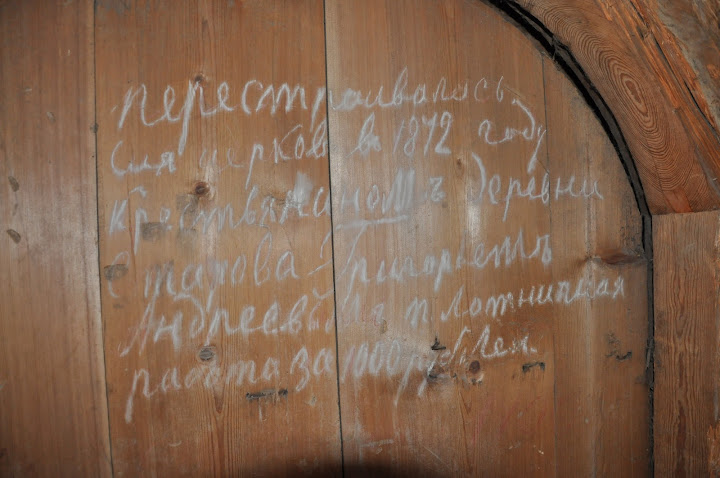 перестраивалась
сия церковь в 1872 году
крестьяниномъ деревни
Григорьемъ
Андреевымъ плотницкая
работа за 1000 рублей